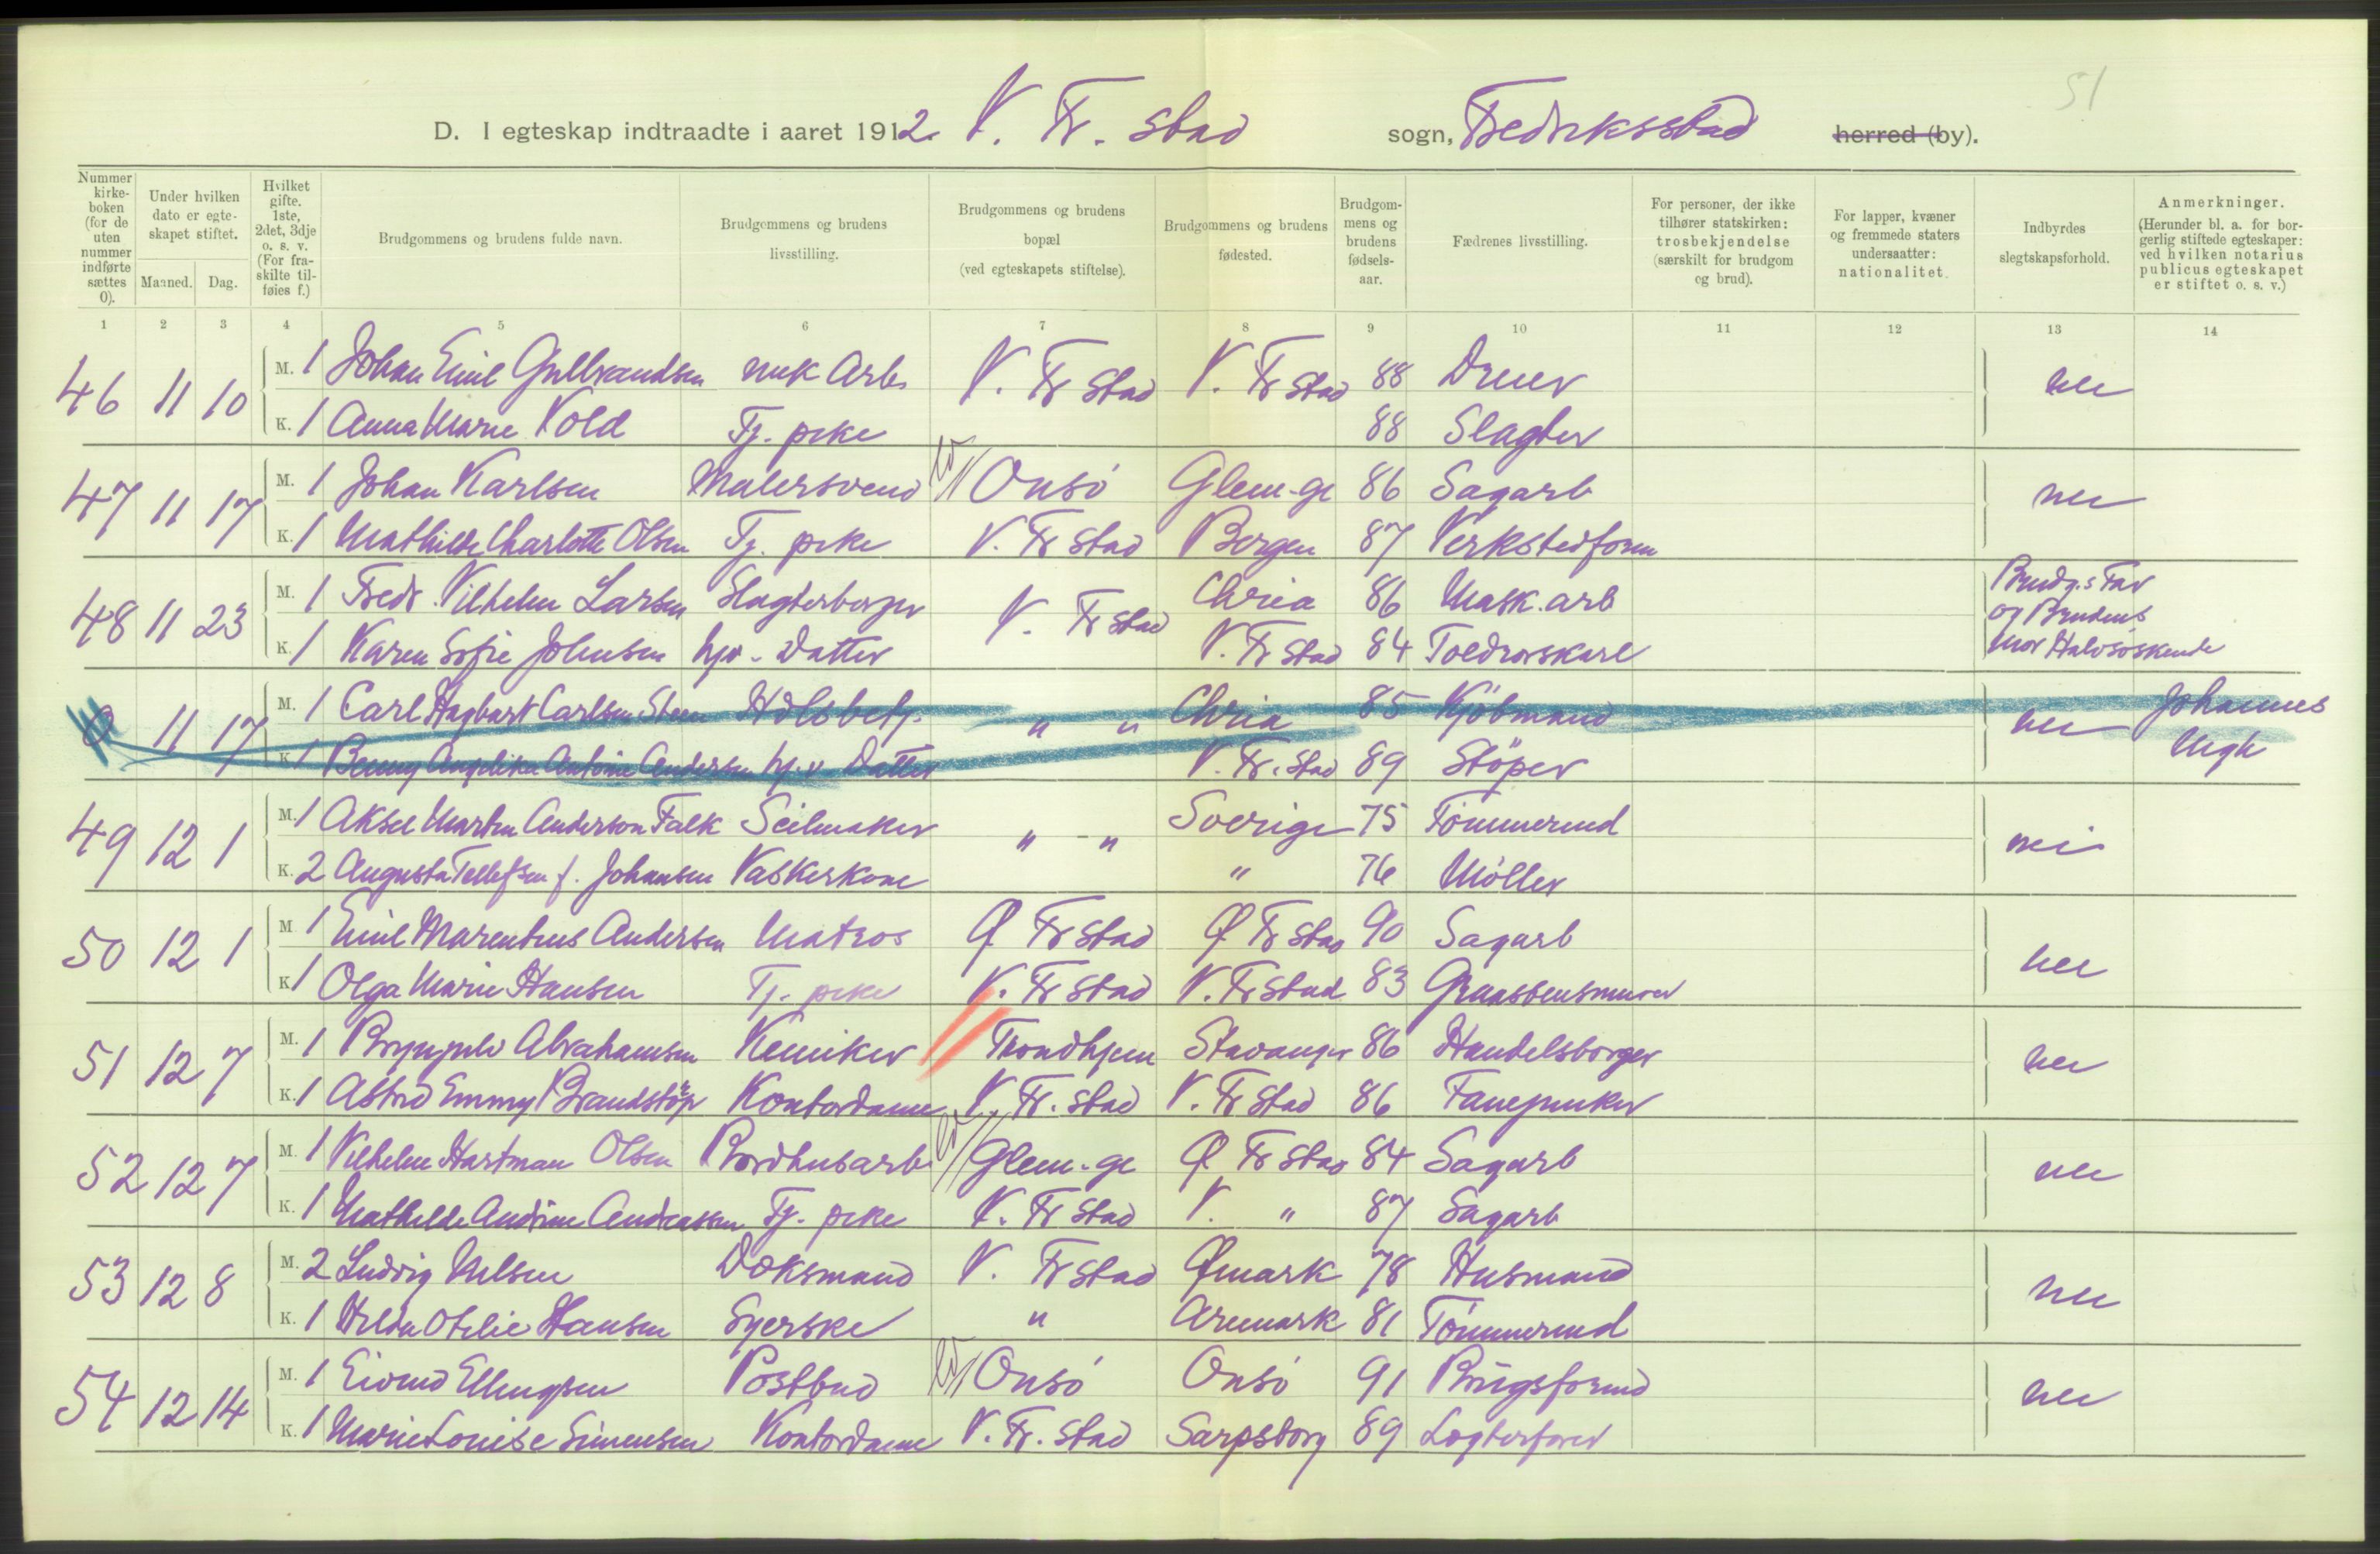 51
D. I egteskap indtraadte i aaret 1912. V. Fr. stad sogn, Fredriksstad herred (by).
Nummer kirke-boken (for de uten nummer indførte sættes 0).
Under hvilken dato er egte-skapet stiftet.
Maaned. Dag.
Hvilket gifte. 1ste, 2det, 3dje o. s. v. (For fra-skilte til-føies f.)
Brudgommens og brudens fulde navn.
Brudgommens og brudens livsstilling.
Brudgommens og brudens bopæl (ved egteskapets stiftelse).
Brudgommens og brudens fødested.
Brudgom-mens og brudens fødsels-aar.
Fædrenes livsstilling.
For personer, der ikke tilhører statskirken: trosbekjendelse (særskilt for brudgom og brud).
For lapper, kvæner og fremmede staters undersaatter: nationalitet.
Indbyrdes slegtskapsforhold.
Anmerkninger. (Herunder bl. a. for bor-gerlig stiftede egteskaper: ved hvilken notarius publicus egteskapet er stiftet o. s. v.)
1 2 3 4 5 6 7 8 9 10 11 12 13 14
46 11 10 M. 1 Johan Emil Gulbrandsen mek Arb. V. Fr stad V. Fr stad 88 Drager nei
K. 1 Anna Marie Vold Tj. pike 88 Slagter
47 11 17 M. 1 Johan Karlsen Malersvend Onsö Glem-ge 86 Sagarb nei
K. 1 Mathilde Charlotte Olsen Tj. pike V. Fr stad Bergen 87 Verkstedform
48 11 23 M. 1 Fredr. Vilhelm Larsen Slagterborger V. Fr stad Chria 86 Mask. arb Brudg.s Far og Brudens Mor Halvsöskende
K. 1 Karen Sofie Johnsen hjv. Datter V. Fr stad 84 Toldrorskarl
0 11 17 M. 1 Carl Hagbart Carlsen Steen Hdlsbetj. " " Chria 85 Kjöbmand nei Johannes Urgh
K 1 Benny Angelika Antonie Andersen hj. v Datter V. Fr. stad 89 Stöper
49 12 1 M. 1 Aksel Martin Anderson Falk Seilmaker " - " Sverige 75 Tömmermd nei
K. 2 Augusta Tellefsen f. Johansen Vaskerkone " 76 Möller
50 12 1 M 1 Emil Marentius Andersen Matros Ø Fr stad Ø Fr stad 90 Sagarb nei
K 1 Olga Marie Hansen Tj. pike V. Fr stad V. Fr stad 83 Graastensmurer
51 12 7 M. 1 Brynjulv Abrahamsen Kemiker Trondhjem Stavanger 86 Handelsborger nei
K. 1 Astrid Emmy Brandstöp Kontordame V. Fr. stad V. Fr stad 86 Fanejunker
52 12 7 M. 1 Vilhelm Hartman Olsen Bordhusarb Glem-ge Ø Fr stad 84 Sagarb nei
K. 1 Mathilde Andrine Andreassen Tj. pike V. Fr stad V. " 87 Sagarb
53 12 8 M. 2 Ludvig Nilsen Doksmand V. Fr stad Ømark 78 Husmand nei
K. 1 Hilda Otelie Hansen Syerske " Aremark 81 Tömmermd
54 12 14 M. 1 Eivind Ellingsen Postbud Onsö Onsö 91 Brugsformd nei
K. 1 Marie Louise Simensen Kontordame V. Fr. stad Sarpsborg 89 Logterforer